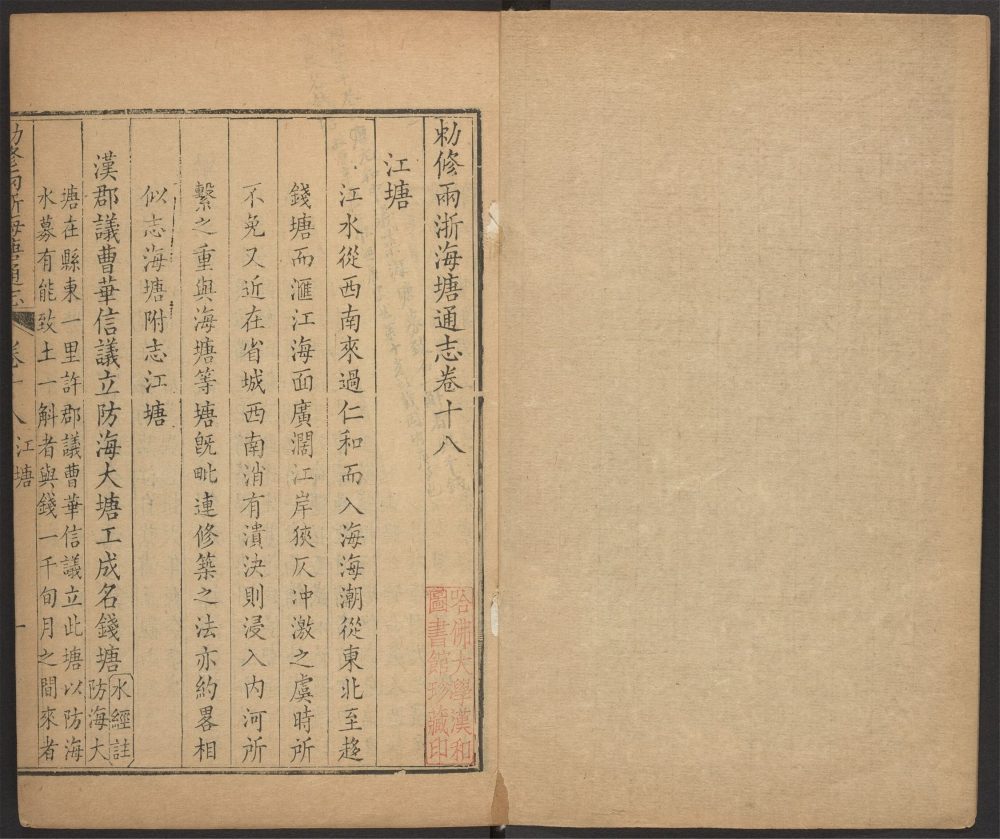 勑修兩浙海塘通志卷十八
江塘
江水從西南來過仁和而入海海潮從東北至趍
錢塘而滙江海面廣濶江岸狹仄冲激之虞時所
不免又近在省城西南消有潰決則浸入内河所
繫之重與海塘等塘旣毗連修築之法亦約畧相
似志海塘附志江塘
漢郡議曹華信議立防海大塘工成名錢塘
水經註
防海大
塘在縣東一里許郡議曹華信議立此塘以防海
水募有能致土一斛者與錢一千旬月之間來者
勑修兩浙海塘通志 卷十八 江塘 一
哈佛大學漢和
圖書館珍藏印